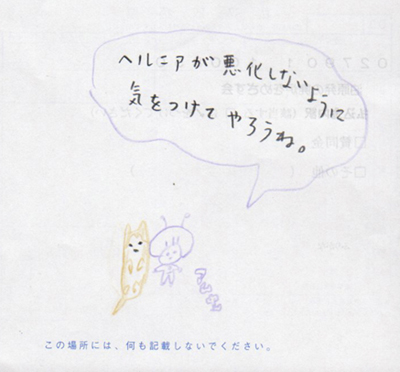 ヘルニアが悪化しないように
気をつけて やろうね。
この場所には、何も記載しないでください。